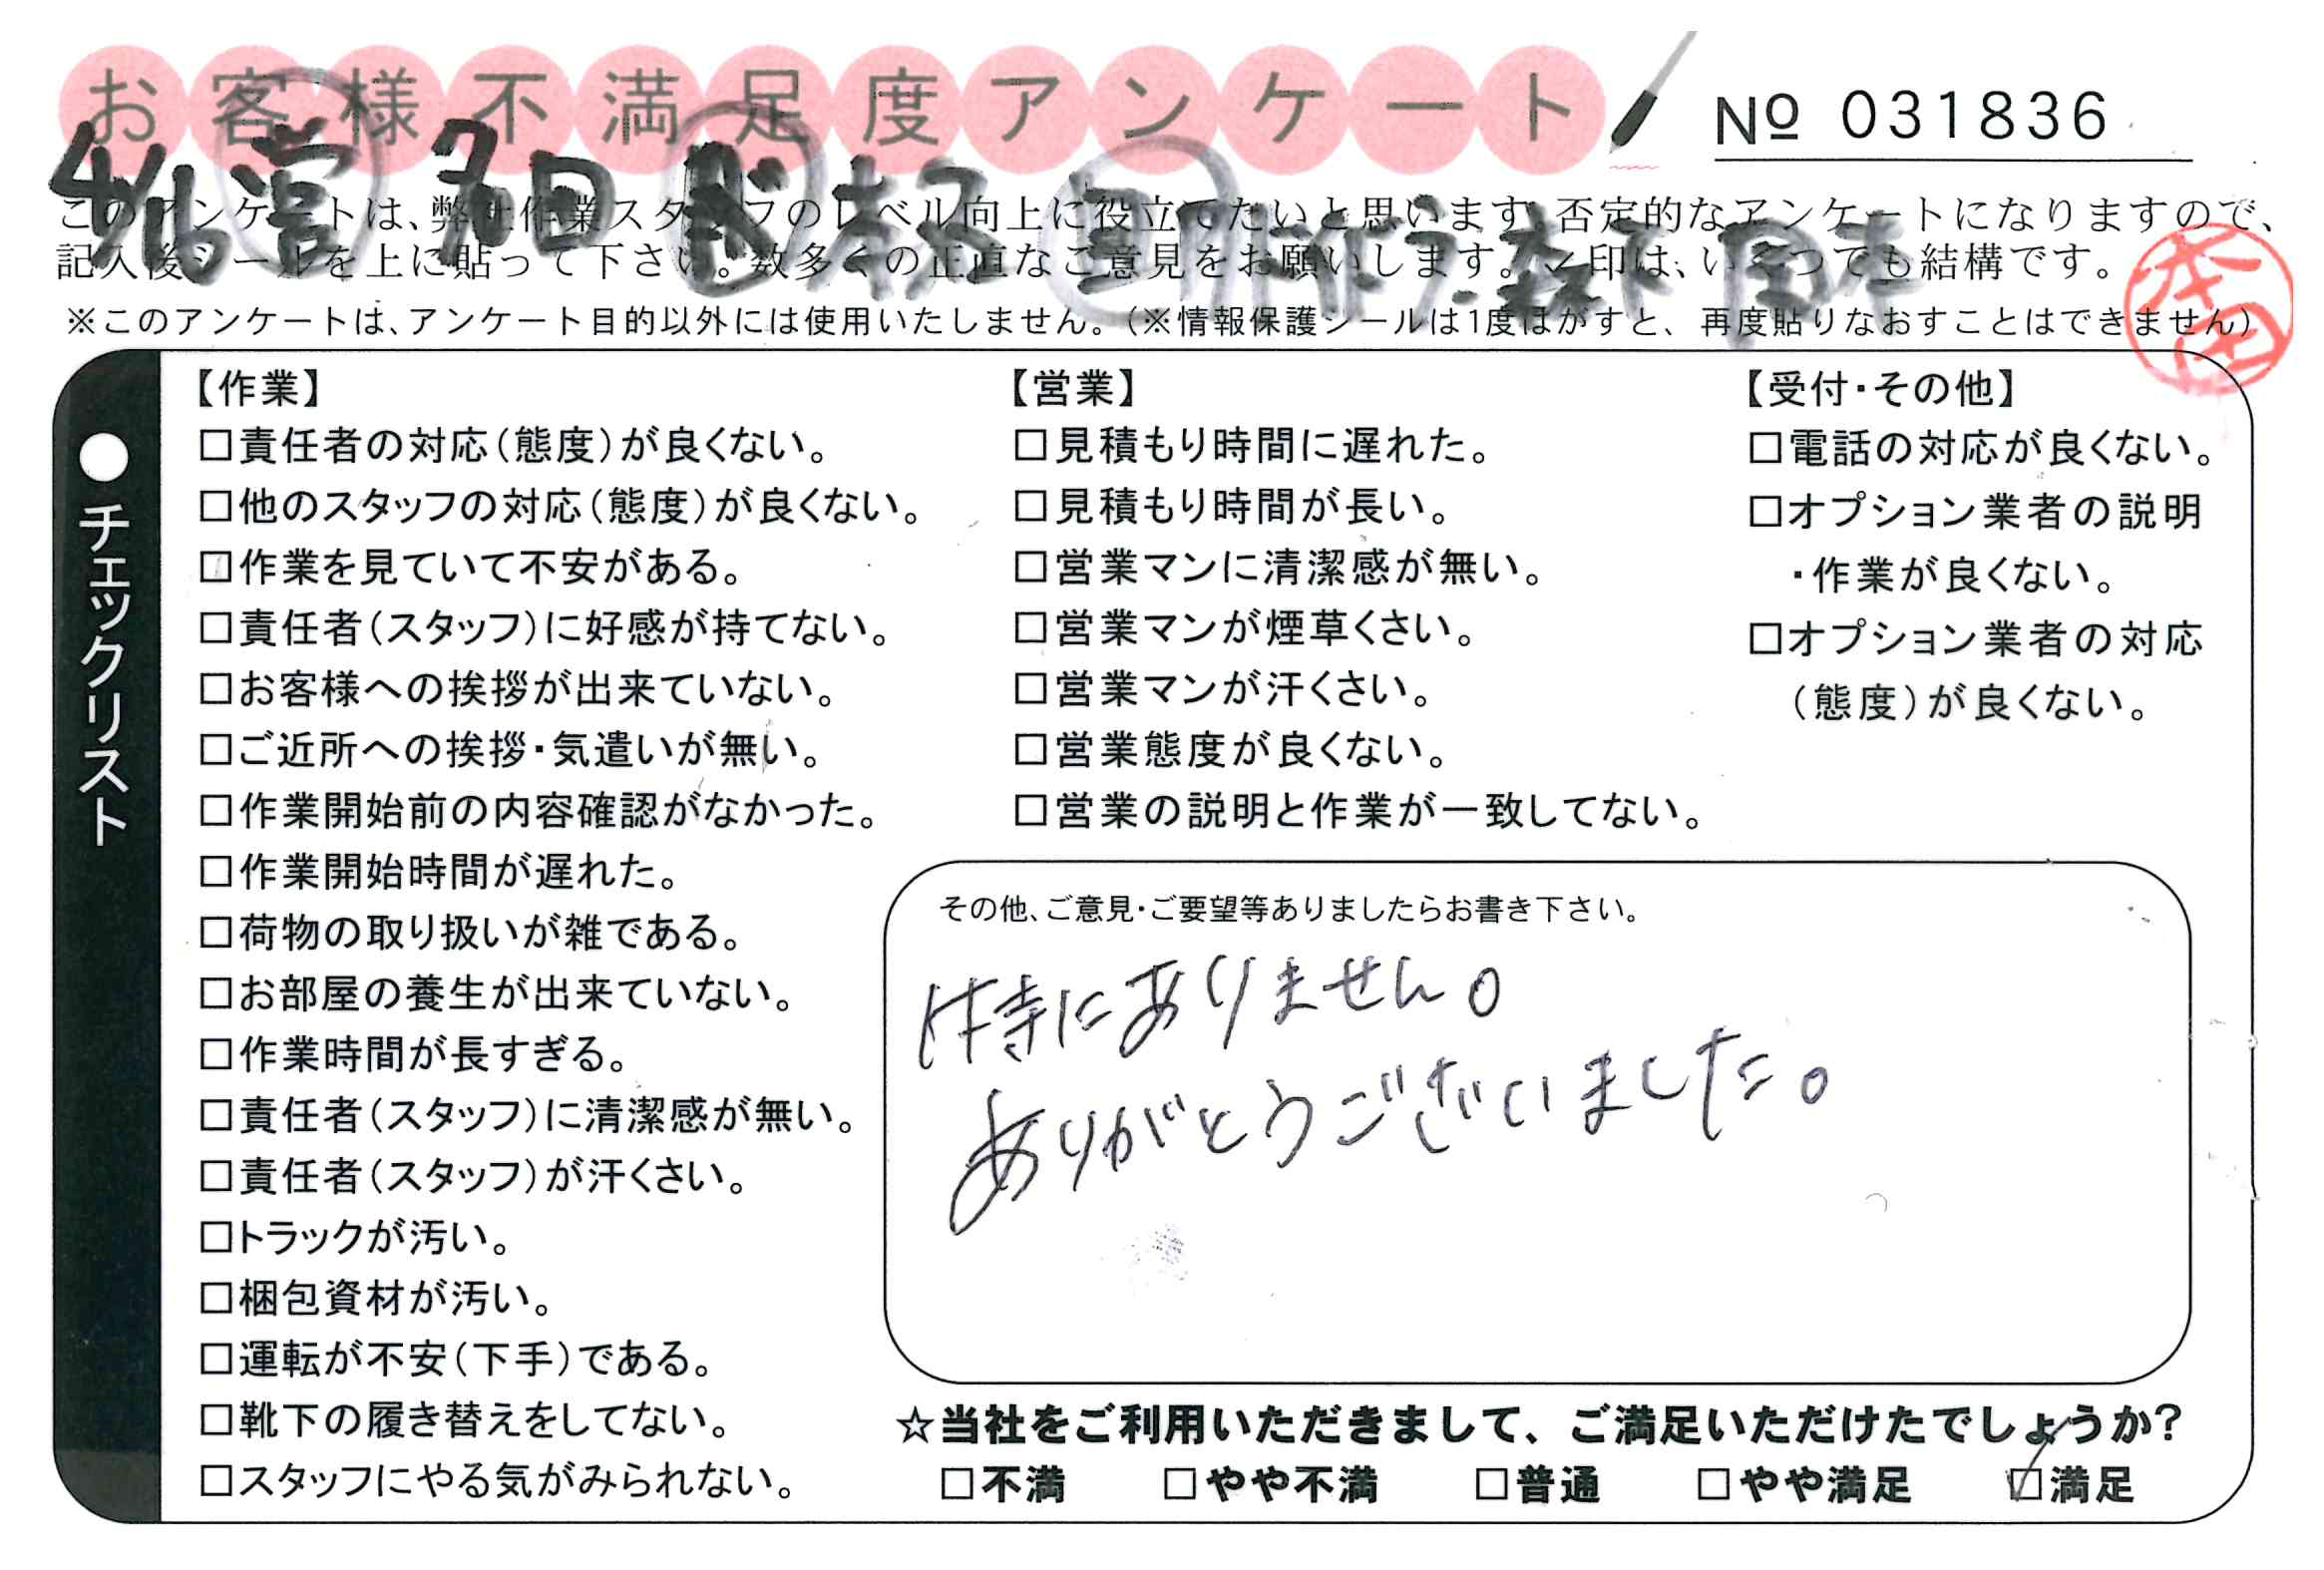 お客様不満足度アンケート
№ 031836
4/16 営 多田 本子 森下 岡本
このアンケートは、弊社作業スタッフのレベル向上に役立てたいと思います。否定的なアンケートになりますので、
記入後シールを上に貼って下さい。数多くの正直なご意見をお願いします。レ印は、いくつでも結構です。
※このアンケートは、アンケート目的以外には使用いたしません。(※情報保護シールは1度はがすと、再度貼りなおすことはできません)
本田
●チェックリスト
【作業】
□責任者の対応(態度)が良くない。
□他のスタッフの対応(態度)が良くない。
□作業を見ていて不安がある。
□責任者(スタッフ)に好感が持てない。
□お客様への挨拶が出来ていない。
□ご近所への挨拶・気遣いが無い。
□作業開始前の内容確認がなかった。
□作業開始時間が遅れた。
□荷物の取り扱いが雑である。
□お部屋の養生が出来ていない。
□作業時間が長すぎる。
□責任者(スタッフ)に清潔感が無い。
□責任者(スタッフ)が汗くさい。
□トラックが汚い。
□梱包資材が汚い。
□運転が不安(下手)である。
□靴下の履き替えをしてない。
□スタッフにやる気がみられない。
【営業】
□見積もり時間に遅れた。
□見積もり時間が長い。
□営業マンに清潔感が無い。
□営業マンが煙草くさい。
□営業マンが汗くさい。
□営業態度が良くない。
□営業の説明と作業が一致してない。
【受付・その他】
□電話の対応が良くない。
□オプション業者の説明
・作業が良くない。
□オプション業者の対応
(態度)が良くない。
その他、ご意見・ご要望等ありましたらお書き下さい。
特にありません。
ありがとうございました。
☆当社をご利用いただきまして、ご満足いただけたでしょうか?
□不満 □やや不満 □普通 □やや満足 ☑満足